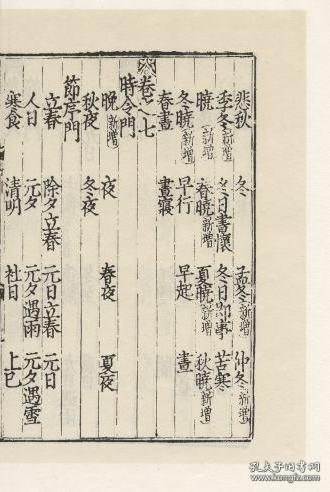 悲秋 冬 孟冬新增 仲冬新增
季冬新增 冬日書懷 冬日即事 苦寒
曉新增 春曉新增 夏曉新增 秋曉新增
冬曉新增 早行 早起 晝
春晝 晝寢
卷之七
時令門
晚新增 夜 春夜 夏夜
秋夜 冬夜
節序門
立春 除夕立春 元日立春 元日
人日 元夕 元夕遇雨 元夕遇雪
寒食 清明 社日 上巳
孔夫子旧书网